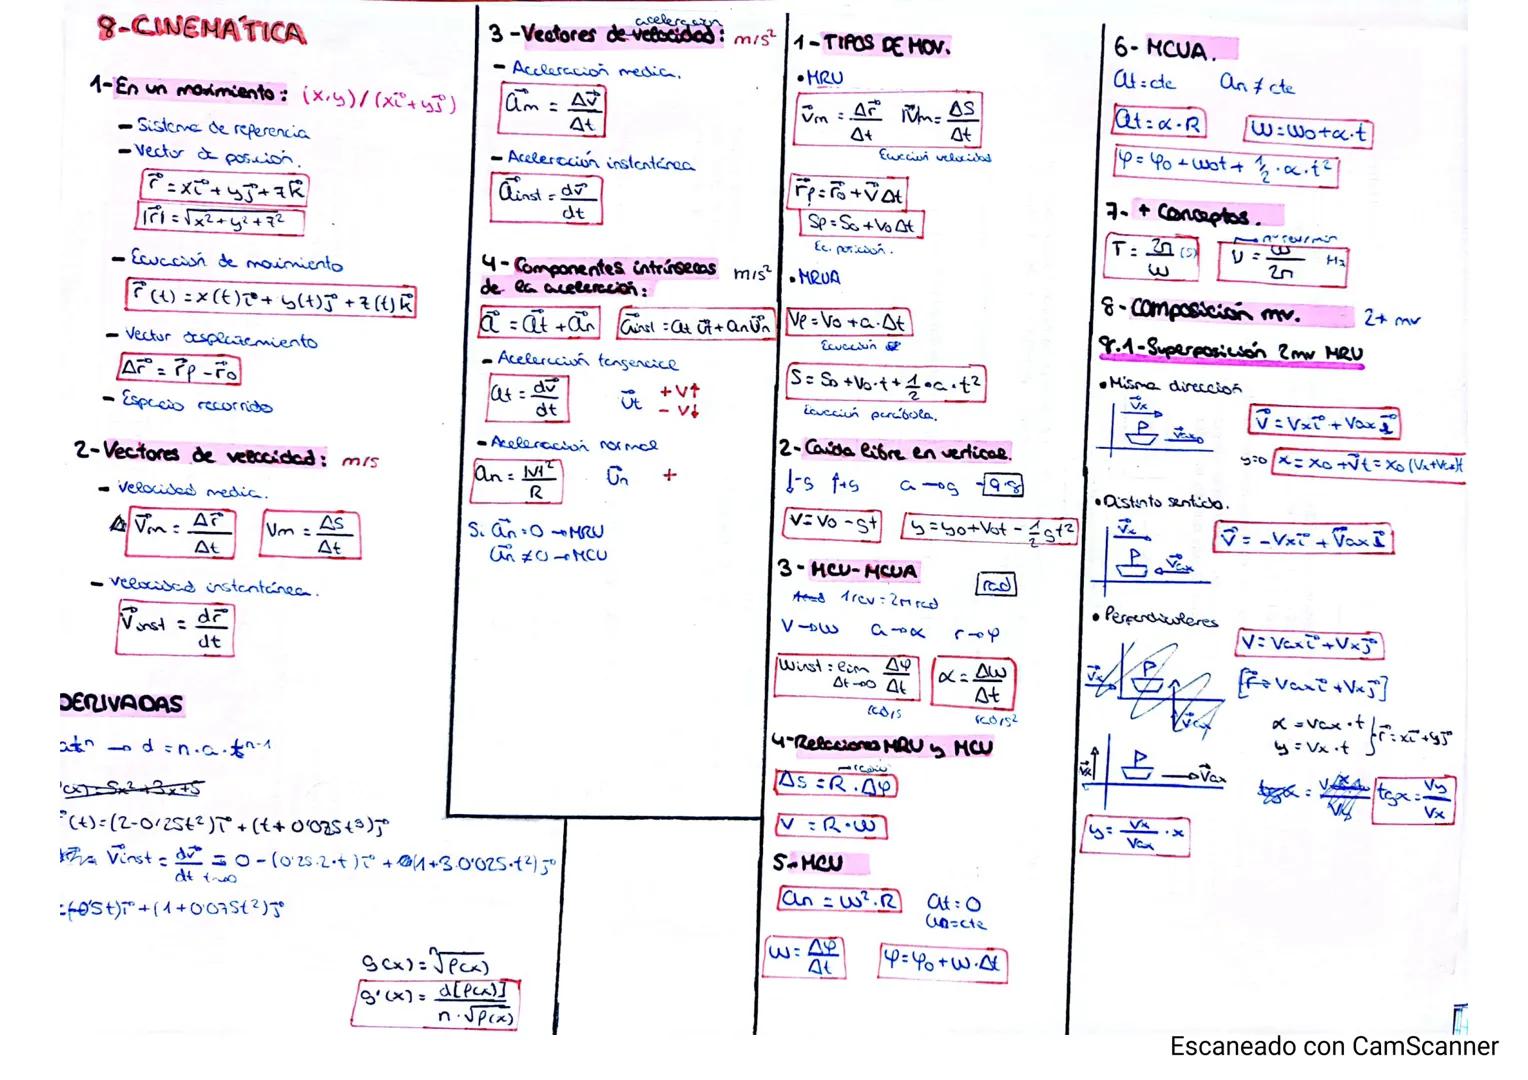 8-CINEMÁTICA
1-En un movimiento: (x,y)/(xi⃗+yj⃗)
- Sistema de referencia
- Vector de posición.
r⃗ = xi⃗ + yj⃗ + zk⃗
|r⃗| = √x²+y²+z²
- Ecuación de movimiento
r⃗(t) = x(t)i⃗ + y(t)j⃗ + z(t)k⃗
- Vector desplazamiento
Δr⃗ = r⃗f - r⃗0
- Espacio recorrido
2-Vectores de velocidad: m/s
- Velocidad media.
V⃗m = Δr⃗/Δt Vm = ΔS/Δt
- Velocidad instantánea.
V⃗inst = dr⃗/dt
DERIVADAS
atⁿ → d = n·a·tⁿ⁻¹
(t)=(2-0'25t²)i⃗ + (t+0'025t³)j⃗
V⃗inst = dv⃗/dt = 0-(0'25·2·t)i⃗ + (1+3·0'025·t²)j⃗
=(-0'5t)i⃗+(1+0'075t²)j⃗
g(x) = ⁿ√f(x)
g'(x) = d[f(x)]/n·√f(x)
3-Vectores de aceleración: m/s²
- Aceleración media.
a⃗m = Δv⃗/Δt
- Aceleración instantánea
a⃗inst = dv⃗/dt
4-Componentes intrínsecas m/s²
de la aceleración:
a⃗ = a⃗t + a⃗n a⃗inst = at u⃗t + an u⃗n
- Aceleración tangencial
at = dv⃗/dt u⃗t + v↑
- v↓
- Aceleración normal
an = |v|²/R u⃗n +
Si a⃗n = 0 → MRU
a⃗n ≠ 0 → MCU
1-TIPOS DE MOV.
• MRU
V⃗m = Δr⃗/Δt |V⃗|m = ΔS/Δt
Ecuación velocidad
r⃗f = r⃗0 + V⃗Δt
Sf = S0 + V0Δt
Ec. posición.
• MRUA
Vf = V0 + a·Δt
Ecuación
S = S0 + V0·t + 1/2·a·t²
Ecuación parábola.
2-Caída libre en vertical.
↓-g ↑+g a→g -9'8
V = V0 - gt y = y0 + V0t - 1/2 gt²
3-MCU-MCUA rad
1rev = 2π rad
V→ω a→α r→φ
Winst = lim Δt→0 Δφ/Δt α = Δω/Δt
rad/s rad/s²
4-Relaciones MRU y MCU
→radio
ΔS = R·Δφ
V = R·ω
5-MCU
an = ω²·R at = 0
an=cte
ω = Δφ/Δt φ = φ0 + ω·Δt
6- MCUA.
at = cte an ≠ cte
at = α·R ω = ω0 + α·t
φ = φ0 + ω0t + 1/2·α·t²
7- + Conceptos.
nº rev/min
T = 2π/ω (s) ν = ω/2π Hz
8-Composición mv. 2+ mv
8.1-Superposición 2mv MRU
• Misma dirección
V⃗x
V⃗ax
V⃗ = Vxi⃗ + Vaxi⃗
y=0 x = x0 + V⃗t = x0 (Vx+Vax)t
• Distinto sentido.
V⃗x
V⃗ax
V⃗ = -Vxi⃗ + V⃗axi⃗
• Perpendiculares
V = Vaxi⃗ + Vxj⃗
V⃗x
V⃗ax
[r⃗ = Vaxi⃗ + Vxj⃗]
x = Vax·t
y = Vx·t
r⃗ = xi⃗ + yj⃗
V⃗x
V⃗ax
tgα = Vy/Vx
y = Vx/Vax · x
Escaneado con CamScanner